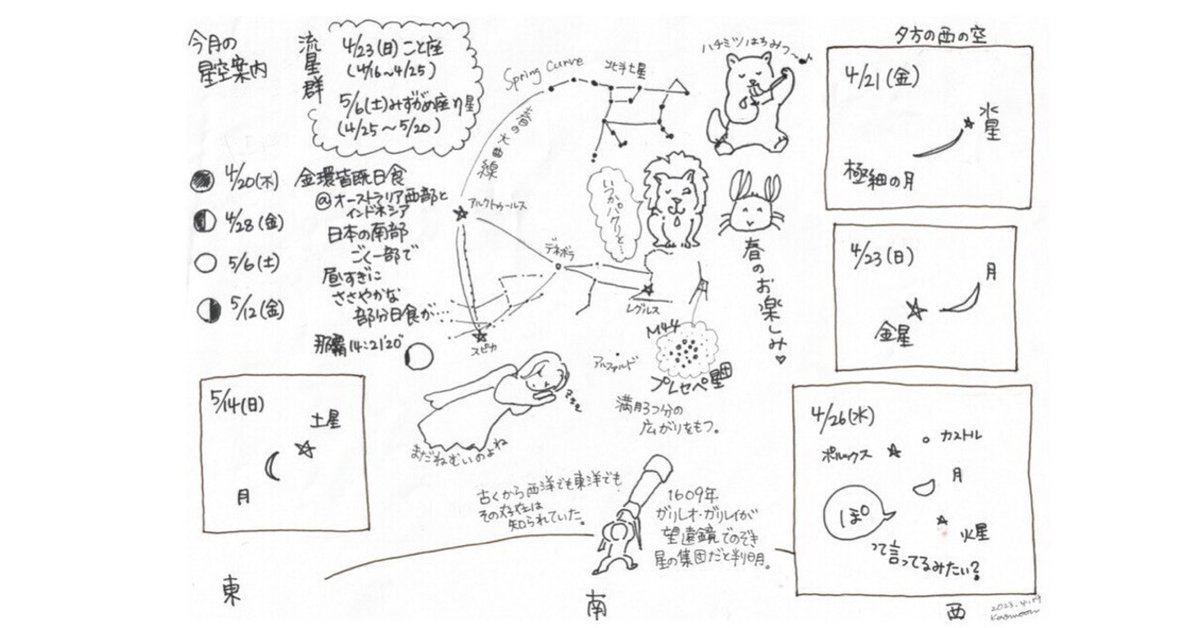 今月の
星空案内
流星群
4/23(日)こと座
(4/16〜4/25)
5/6(土)みずがめ座η星
(4/25〜5/20)
4/20(木)
4/28(金)
5/6(土)
5/12(金)
金環皆既日食
@オーストラリア西部と
インドネシア
日本の南部
ごく一部で
昼すぎに
ささやかな
部分日食が…
那覇14:21'20"
Spring Curve
春の大曲線
北斗七星
アルクトゥールス
デネボラ
スピカ
レグルス
アルファルド
いつかパクリと…
ハチミツはちみつ〜♪
春のお楽しみ♥
M44
プレセペ星団
満月3つ分の
広がりをもつ。
まだねむいのよね
古くから西洋でも東洋でも
その存在は
知られていた。
1609年
ガリレオ・ガリレイが
望遠鏡でのぞき
星の集団だと判明。
夕方の西の空
4/21(金)
水星
極細の月
4/23(日)
月
金星
4/26(水)
カストル
ポルックス
月
ぽ
火星
って言ってるみたい?
5/14(日)
土星
月
東
南
西